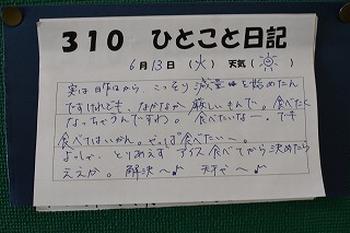 310 ひとこと日記
6月13日(火) 天気(☀)
実は昨日から、こっそり減量を始めたん
ですけれども、なかなか厳しいもんで。食べたく
なっちゃうんですわ。食べたいなー。でも
食べてはいかん。やっぱ食べたいー。
よっしゃ、とりあえずアイス食べてから決めたら
ええか。解決〜♪